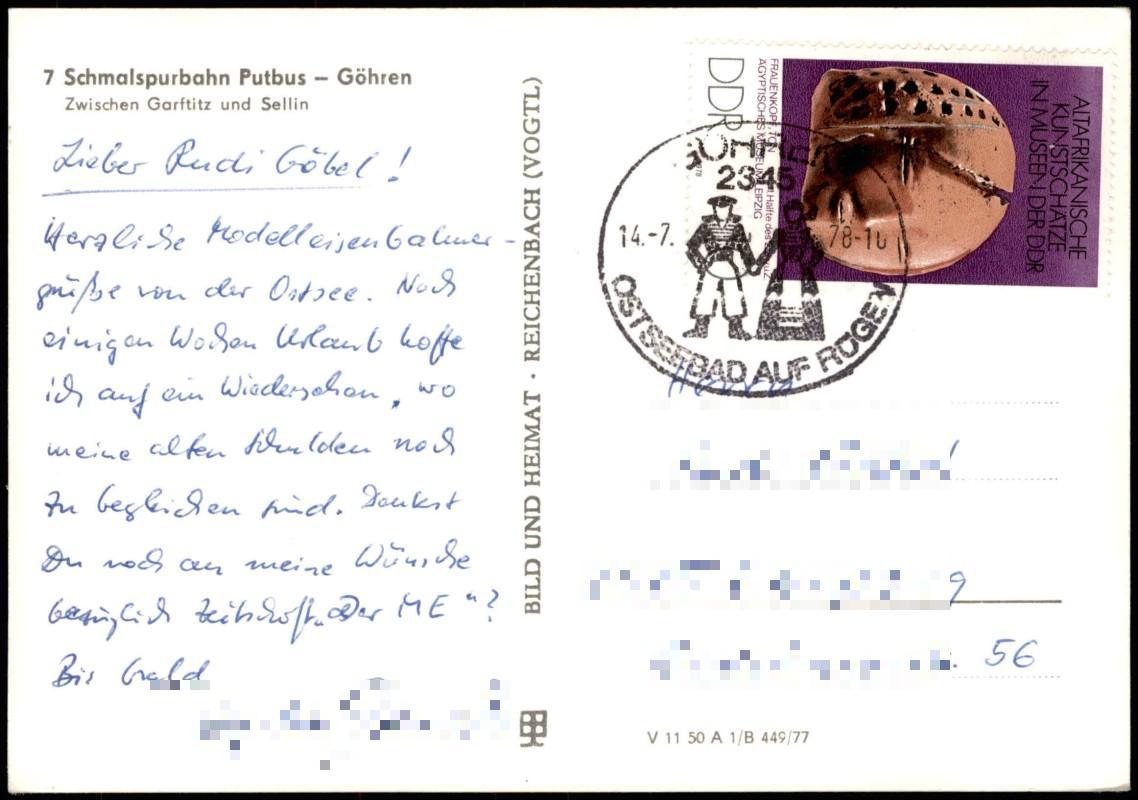 7 Schmalspurbahn Putbus – Göhren
Zwischen Garftitz und Sellin
Lieber Rudi Göbel!
Herzliche Modelleisenbahner-
grüße von der Ostsee. Nach
einigen Wochen Urlaub hoffe
ich auf ein Wiedersehen, wo
meine alten Schulden noch
zu begleichen sind. Denkst
Du noch an meine Wünsche
bezüglich Zeitschrift „Der ME“?
Bis bald
BILD UND HEIMAT · REICHENBACH (VOGTL)
DDR
FRAUENKOPF, TON
ÄGYPTISCHES MUSEUM LEIPZIG
ALTAFRIKANISCHE
KUNSTSCHÄTZE
IN MUSEEN DER DDR
GÖHREN
2345
14.-7. 78-10
OSTSEEBAD AUF RÜGEN
Herrn
9
56
V 11 50 A 1/B 449/77